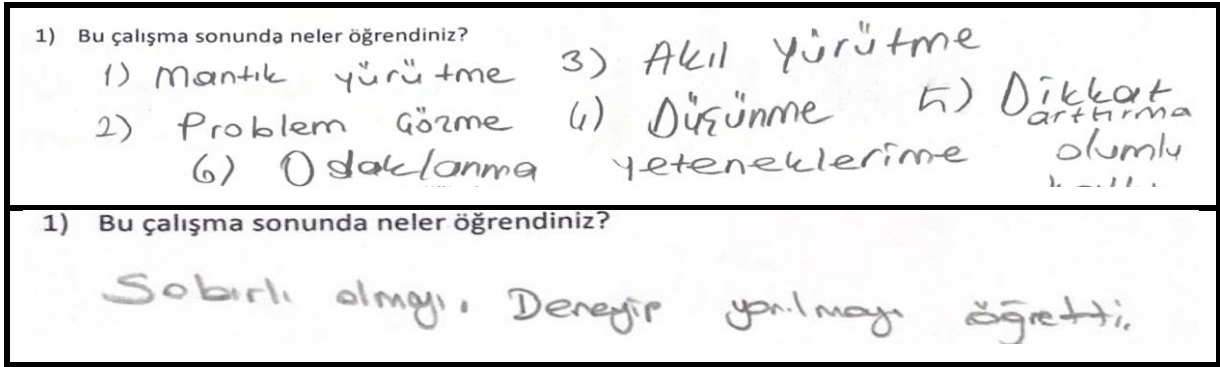 1) Bu çalışma sonunda neler öğrendiniz?
1) Mantık yürütme 3) Akıl yürütme
2) Problem Çözme 4) Düşünme 5) Dikkat arttırma
6) Odaklanma yeteneklerime olumlu
1) Bu çalışma sonunda neler öğrendiniz?
Sabırlı olmayı, Deneyip yanılmayı öğretti.